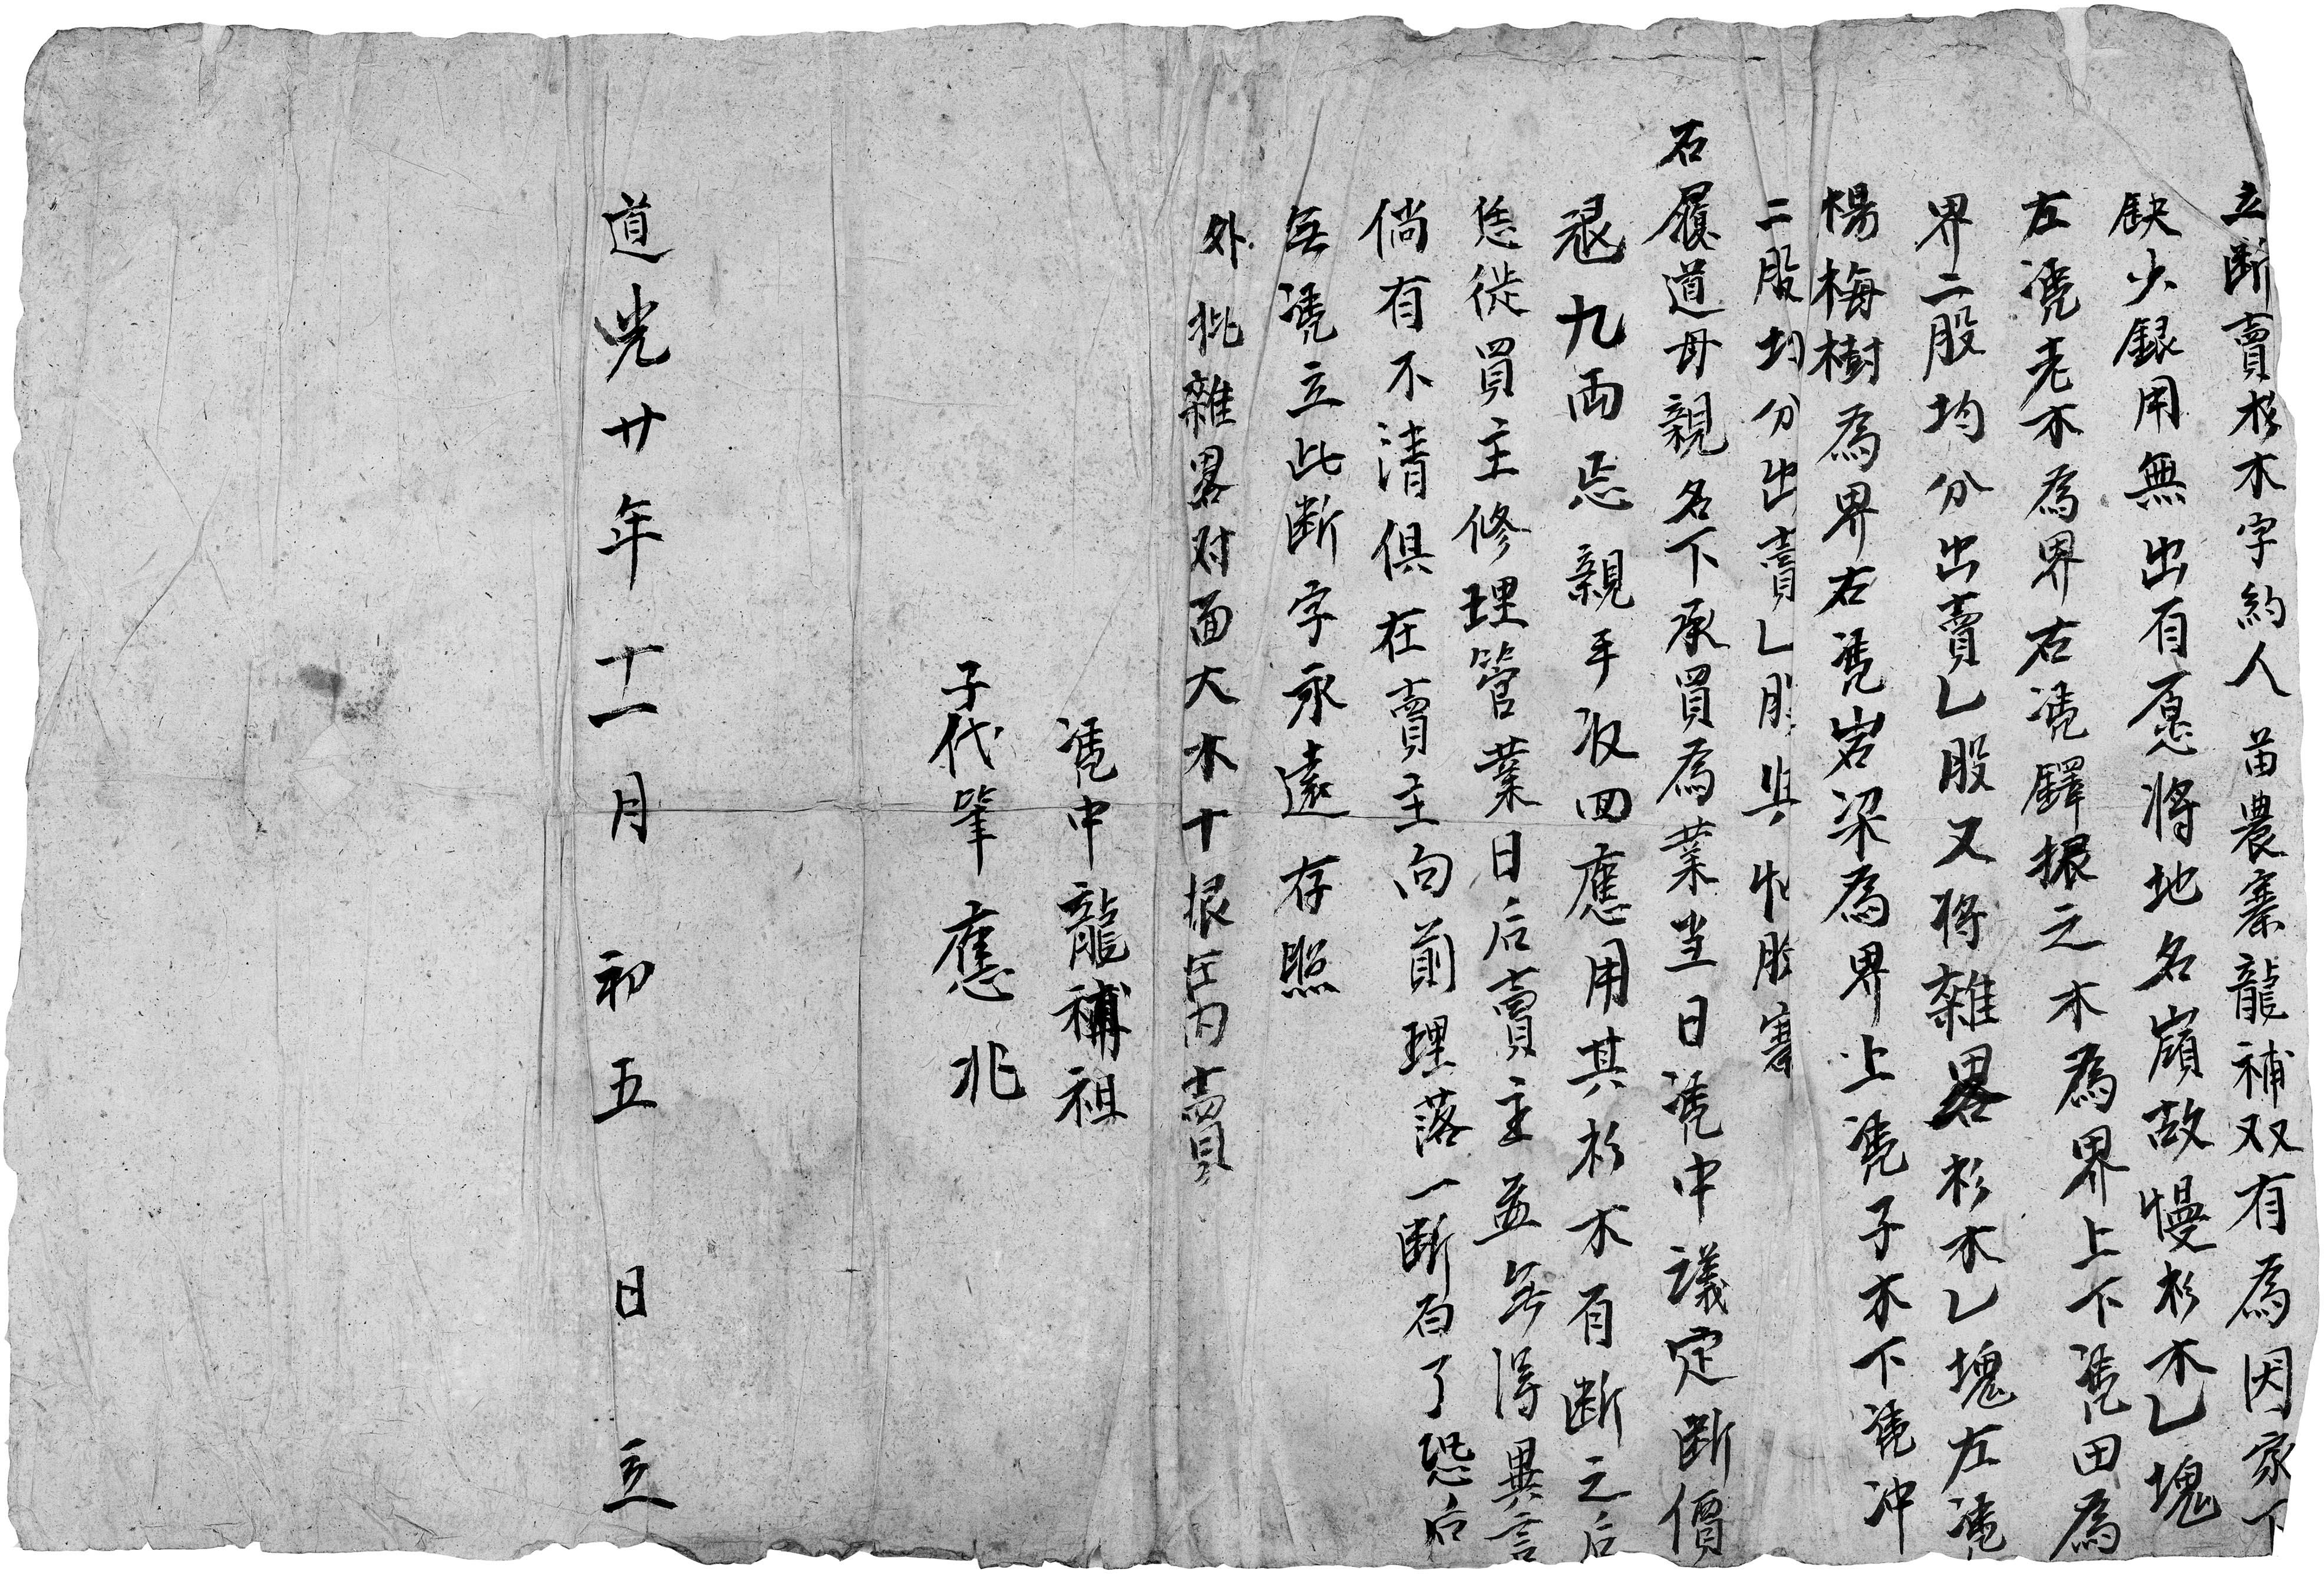 立断賣杉木字約人苗農寨龍補双有為因家下
缺少銀用無出有愿將地名嶺故慢杉木乚塊
左凴老木為界右凴鐸振之木為界上下凴田為
界二股均分出賣乚股又將雜畧杉木乚塊左凴
楊梅樹為界右凴岩梁為界上凴子木下凴冲
二股均分出賣乚股與 股寨
石履道母親名下承買為業当日凴中議定断價
銀九両忎親手收回應用其杉木有断之后
恁從買主修理管業日后賣主並無得異言
倘有不清俱在賣主向前理落一断百了恐后
無凴立此断字永遠存照
外批雜畧对面大木十根在內賣
凴中龍補祖
子代筆應兆
道光廿年十一月初五日立